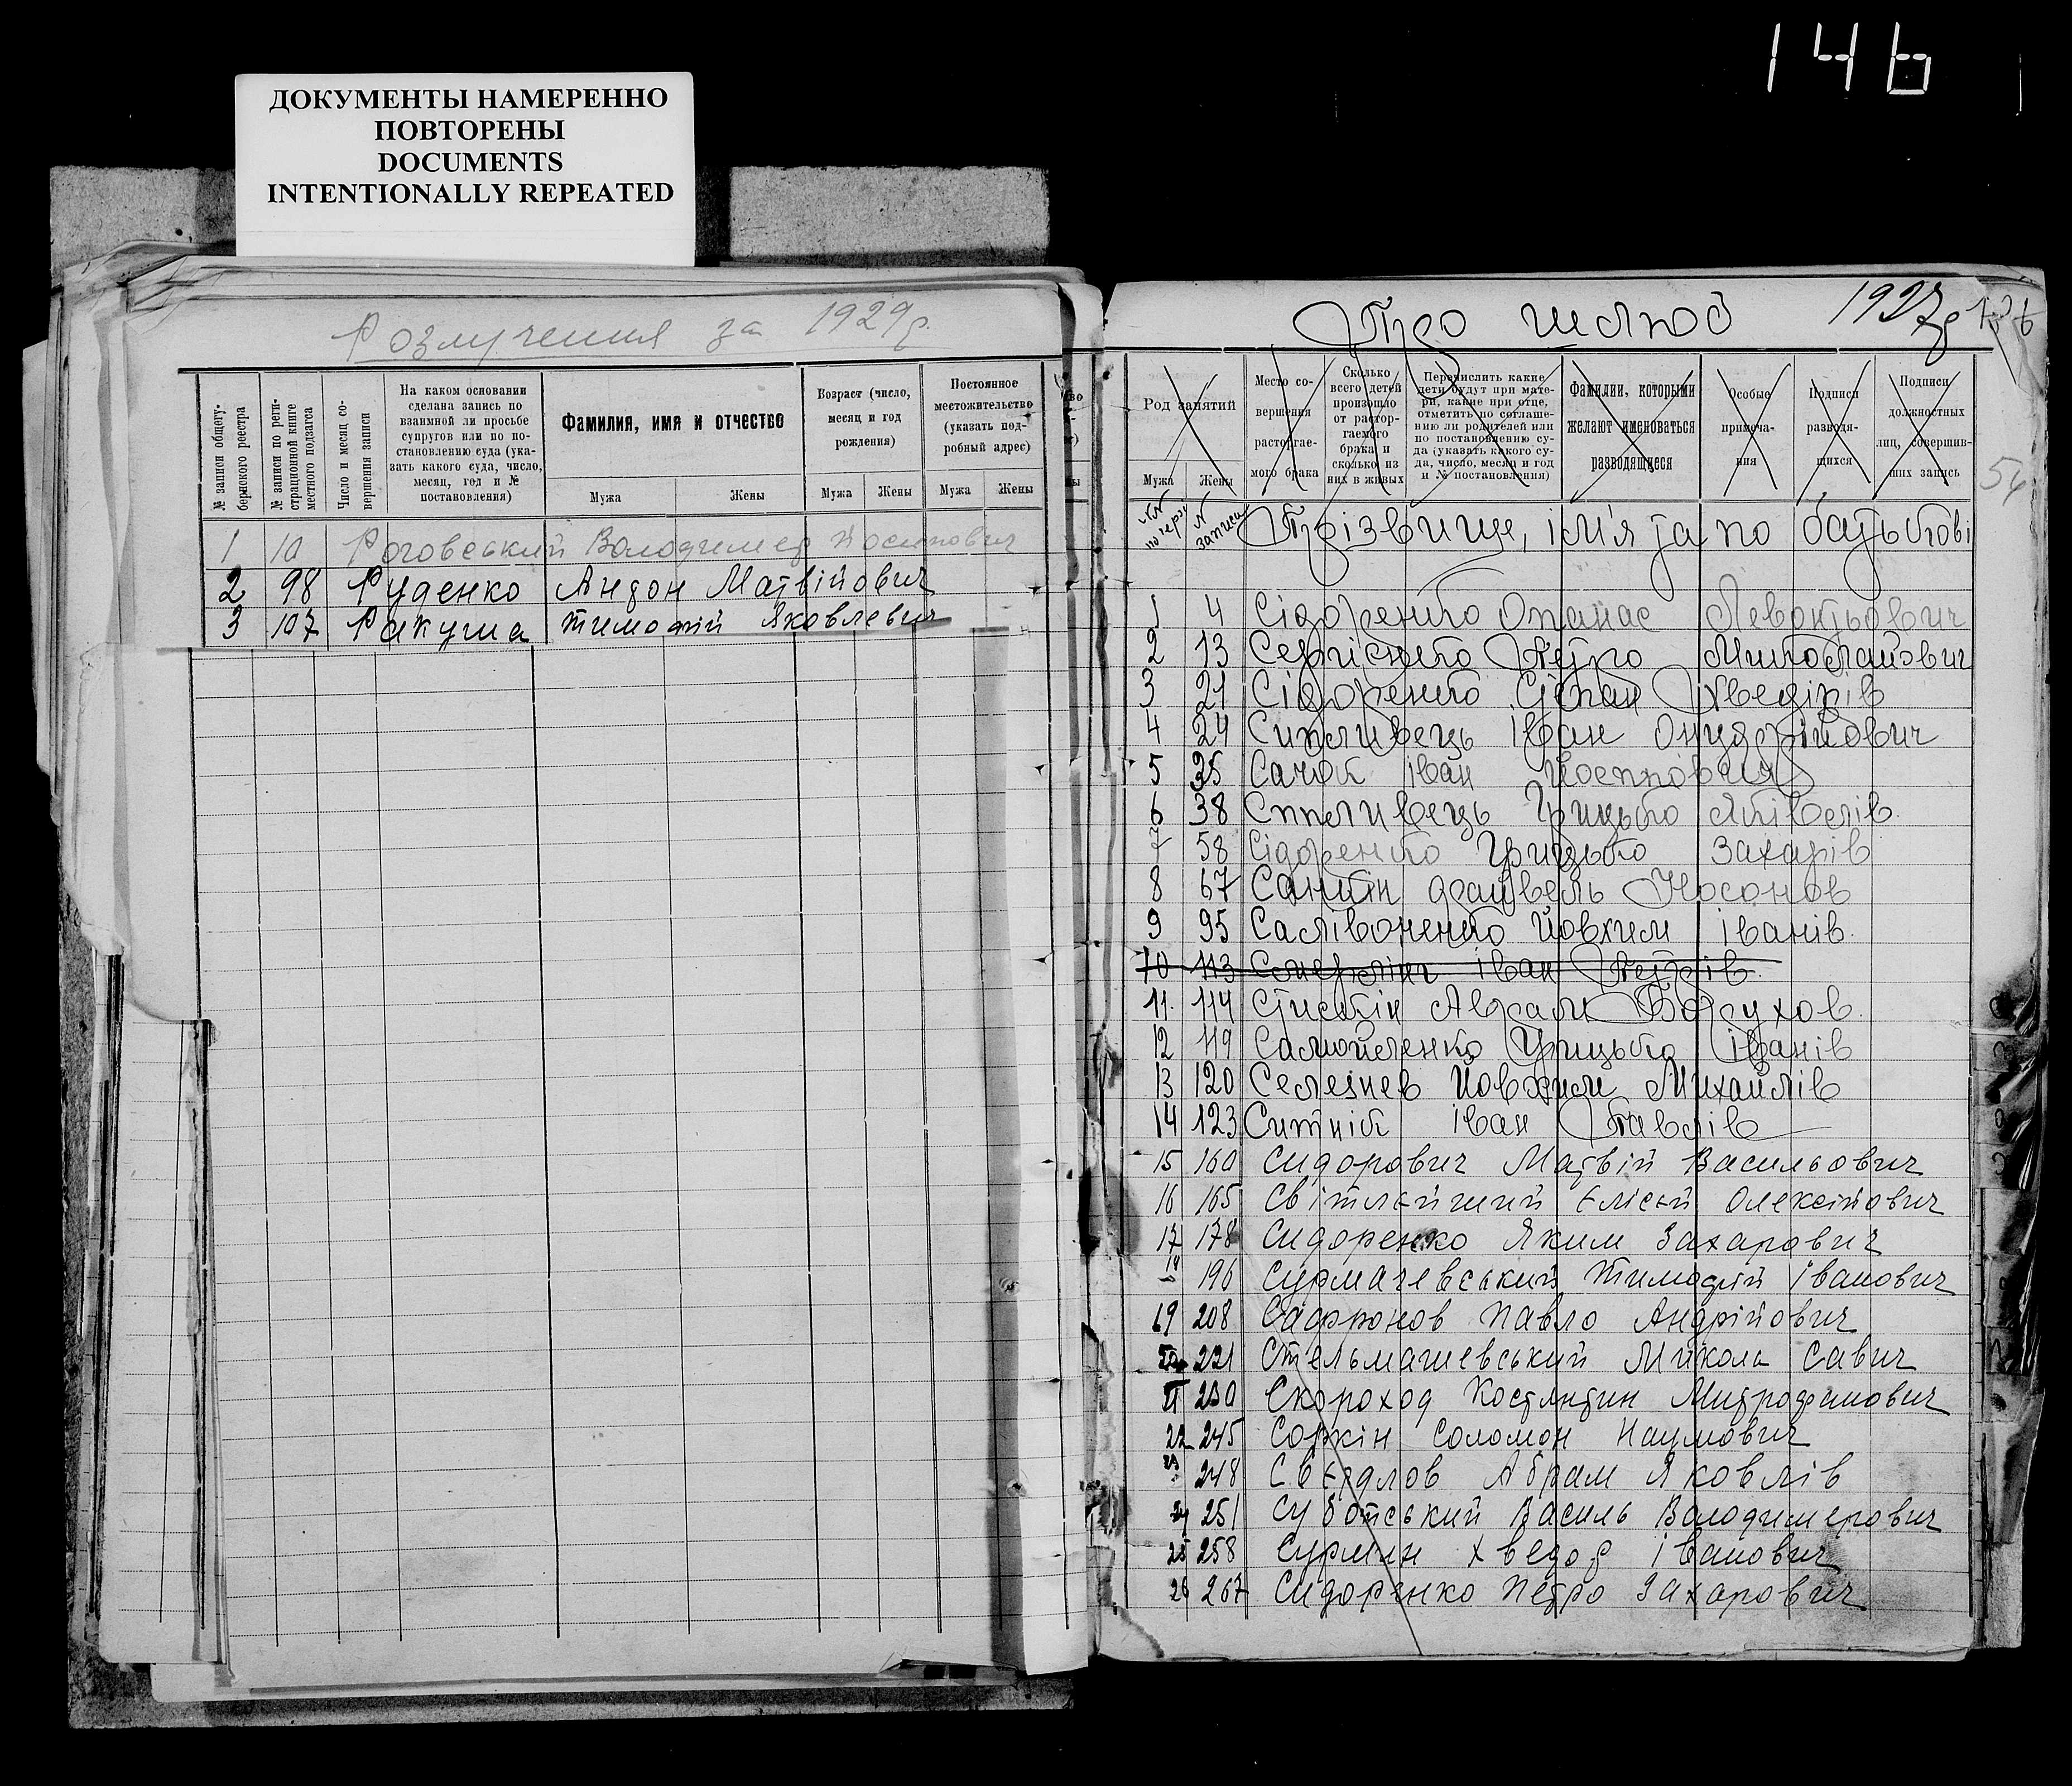 146
ДОКУМЕНТЫ НАМЕРЕННО
ПОВТОРЕНЫ
DOCUMENTS
INTENTIONALLY REPEATED
Розлучення за 1929р.
№ записи общегу-
бернского реестра
№ записи по реги-
страционной книге
местного подзагса
Число и месяц со-
вершения записи
На каком основании
сделана запись по
взаимной ли просьбе
супругов или по по-
становлению суда (ука-
зать какого суда, число,
месяц, год и №
постановления)
Фамилия, имя и отчество
Мужа Жены
Возраст (число,
месяц и год
рождения)
Мужа Жены
Постоянное
местожительство
(указать под-
робный адрес)
Мужа Жены
1 10 Роговський Володимер Йосипович
2 98 Руденко Антон Матвійович
3 107 Ракуша Тимофій Яковлевич
Про шлюб 1927р
54
Род занятий
Мужа Жены
Место со-
вершения
расторгае-
мого брака
Сколько
всего детей
произошло
от растор-
гаемого
брака и
сколько из
них в живых
Перечислить какие
дети будут при мате-
ри, какие при отце,
отметить по соглаше-
нию ли родителей или
по постановлению су-
да (указать какого су-
да, число, месяц и год
и № постановления)
Фамилии, которыми
желают именоваться
разводящиеся
Особые
примеча-
ния
Подписи
разводя-
щихся
Подписи
должностных
лиц, совершив-
ших запись
№ записи Прізвище, ім'я та по батькові
1 4 Сідоренко Опанас Левонтьович
2 13 Сергієнко Петро Миколайович
3 21 Сідоренко Степан Хведірів
4 24 Сипливець Іван Онуфрійович
5 35 Сачок Іван Йосипович
6 38 Сипливець Грицько Яківлів
7 58 Сідоренко Грицько Захарів
8 67 Носонов
9 95 Салівоненко Йовхим Іванів
10 113 Іван Петрів
11 114 Аврам Борухов
12 119 Самойленко Грицько Іванів
13 120 Селезнев Йовхим Михайлів
14 123 Ситнік Іван Павлів
15 160 Сидорович Матвій Васильович
16 165 Світлєйший Єлісей Олексійович
17 178 Сидоренко Яким Захарович
18 196 Сурмачевський Тимофій Іванович
19 208 Сафронов Павло Андрійович
20 221 Стельмашевський Микола Савич
21 230 Скороход Костянтин Митрофанович
22 245 Соркін Соломон Наумович
23 248 Свєрдлов Абрам Яковлів
24 251 Суботський Василь Володимерович
25 258 Сурмин Хведор Іванович
26 267 Сидоренко Петро Захарович